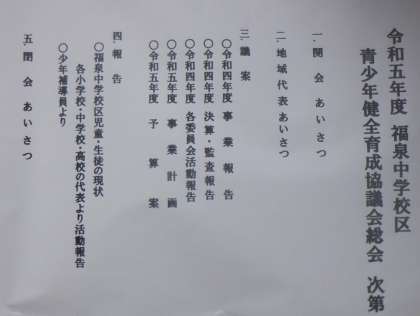 令和五年度 福泉中学校区
青少年健全育成協議会総会 次第
一、開会あいさつ
二、地域代表あいさつ
三、議案
○令和四年度 事業報告
○令和四年度 決算・監査報告
○令和四年度 各委員会活動報告
○令和五年度 事業計画
○令和五年度 予算案
四、報告
○福泉中学校区児童・生徒の現状
各小学校・中学校・高校の代表より活動報告
○少年補導員より
五、閉会あいさつ